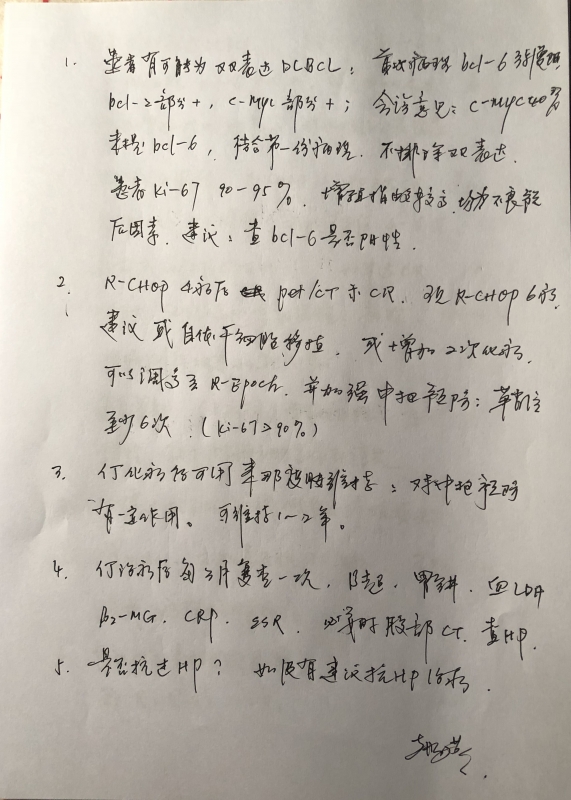 1. 患者有可能为双表达DLBCL: 首次病理 bcl-6
bcl-2部分+, c-Myc部分+; 会诊意见: c-MYC40%
未提bcl-6, 结合第一份病理, 不排除双表达.
患者Ki-67 90-95%, 增殖指数较高, 均为不良预
后因素. 建议: 查bcl-6是否阳性.
2. R-CHOP 4疗后 pet/CT示CR. 现R-CHOP 6疗,
建议或自体干细胞移植, 或增加2次化疗.
可以调为R-Epoch. 并加强中枢预防: 鞘注
至少6次. (Ki-67>90%)
3. 停化疗后可用来那度胺维持: 对中枢预防
有一定作用。可维持1~2年。
4. 停治疗后每3月复查一次, B超. 胃镜. 血LDH
β2-MG. CRP. ESR. 必要时腹部CT. 查HP.
5. 是否抗过HP? 如没有建议抗HP治疗.